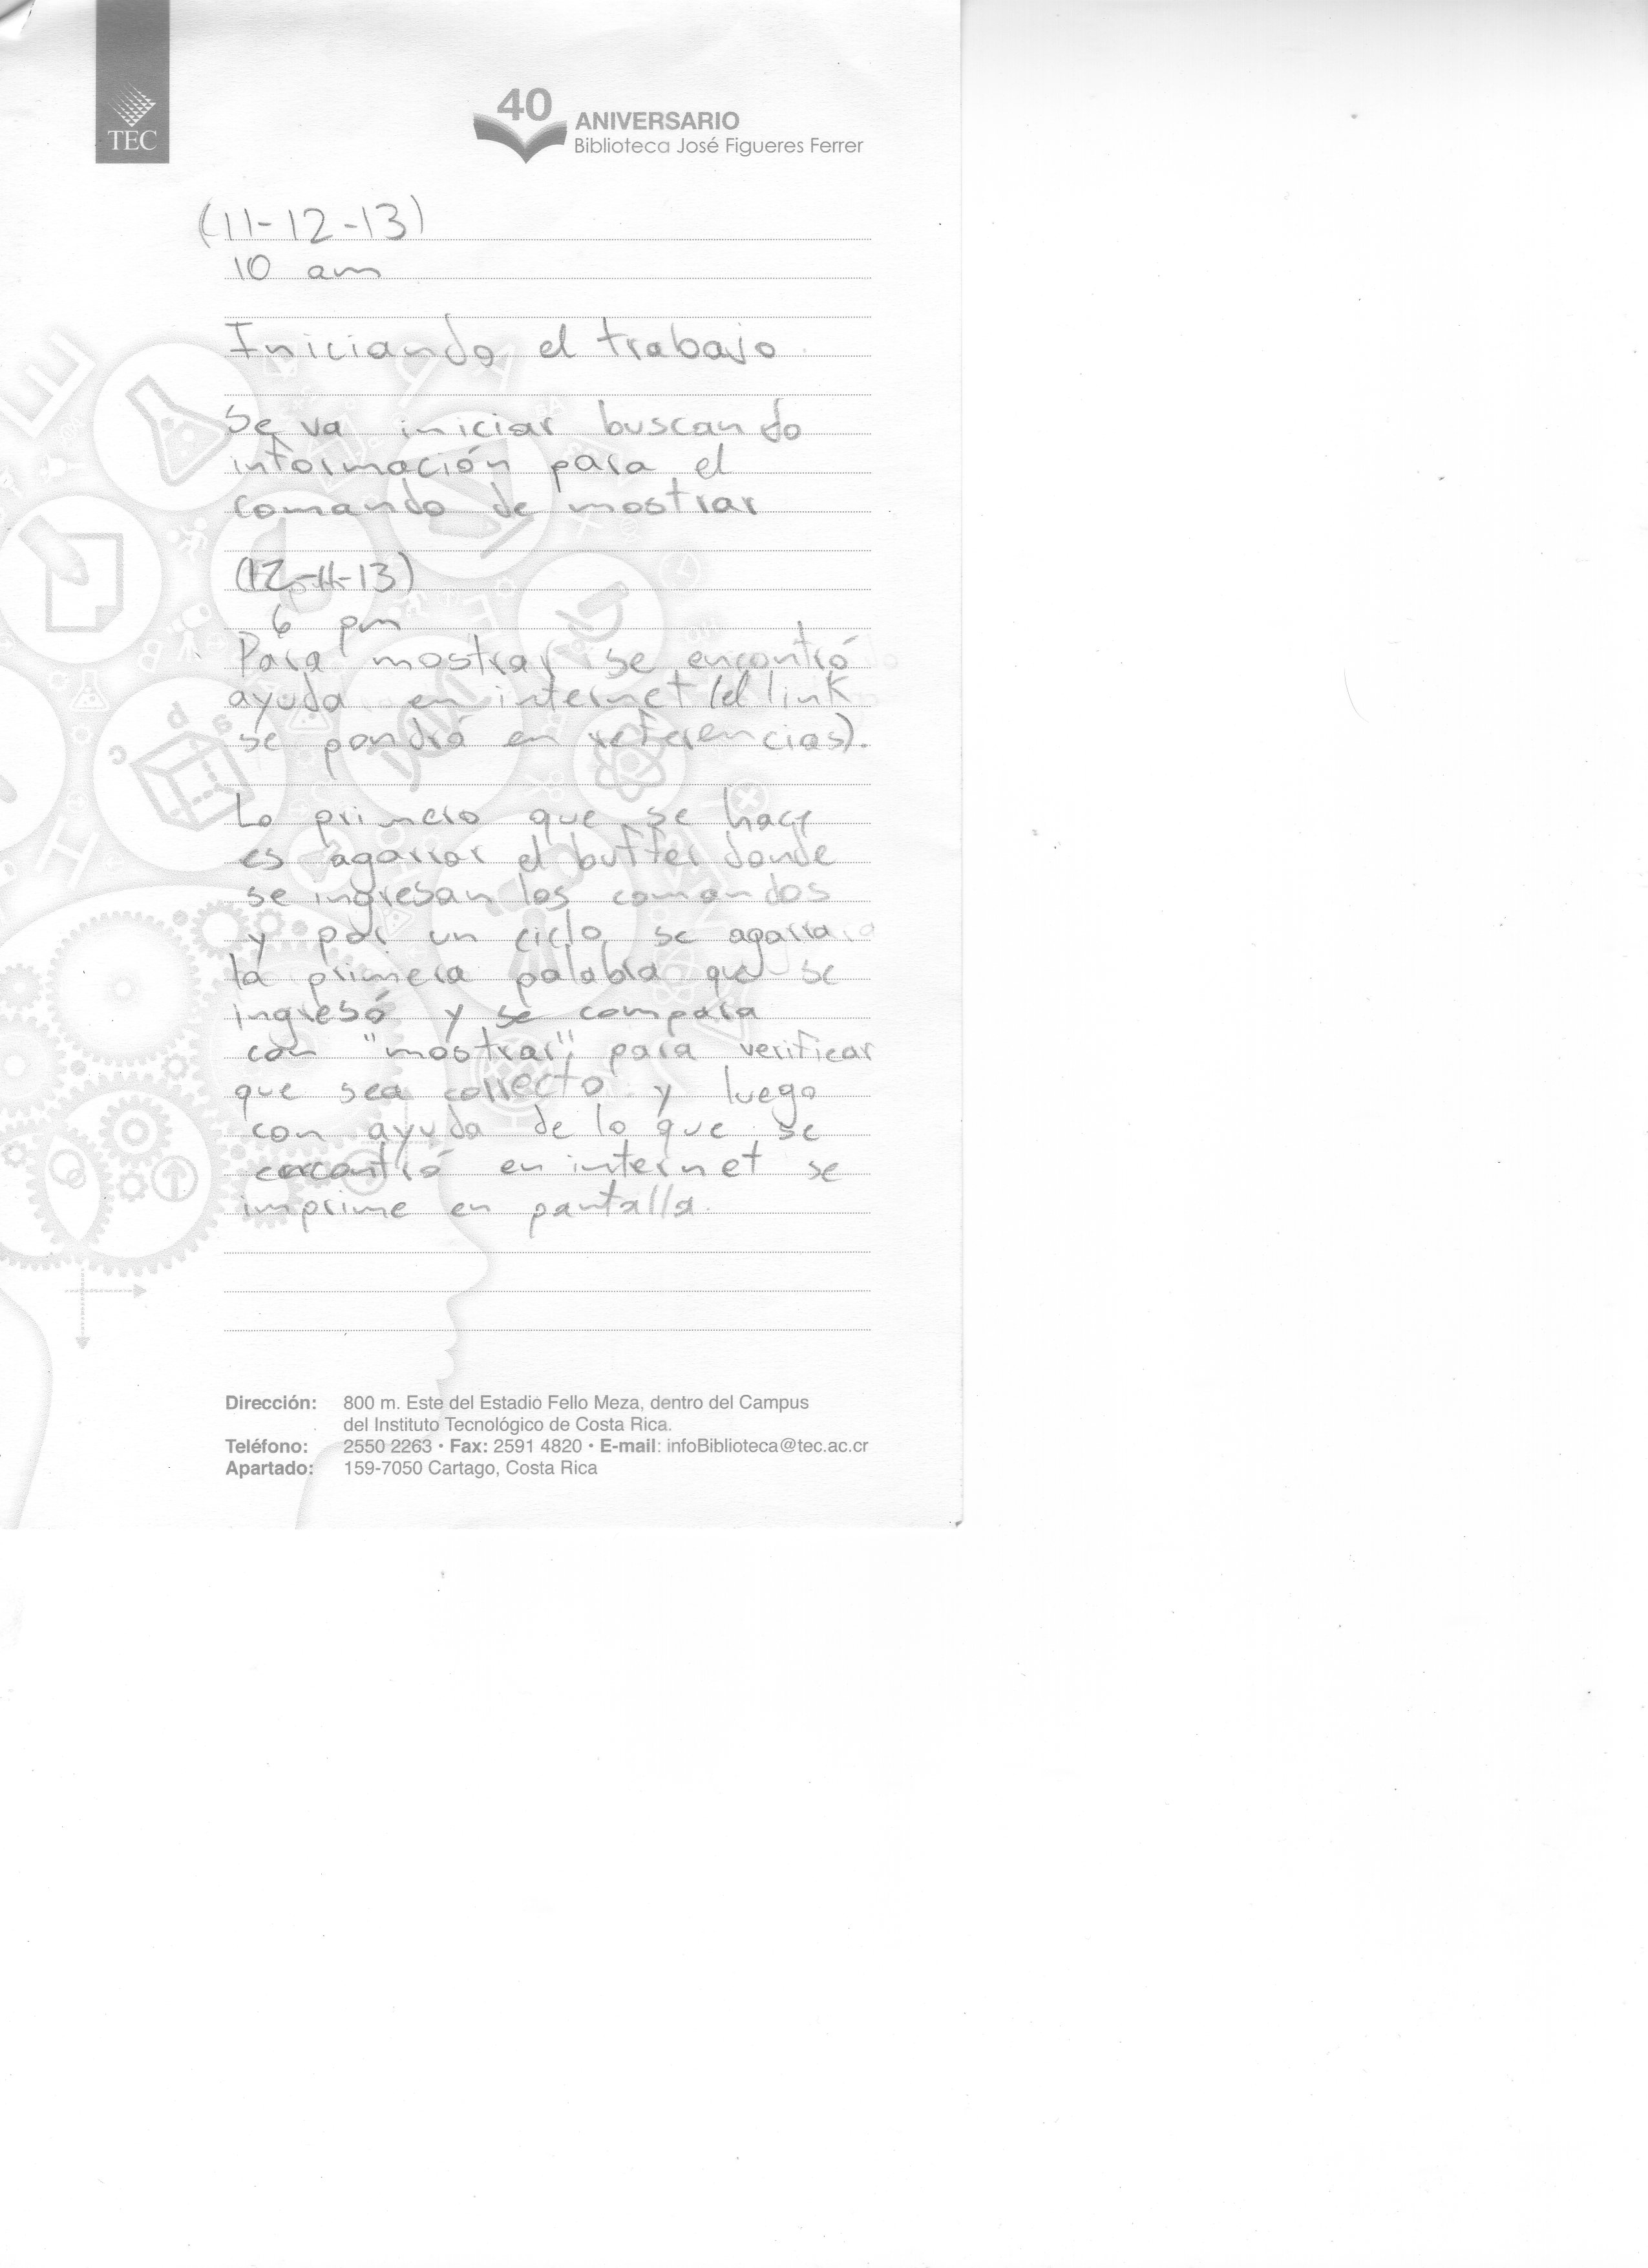 TEC
40
ANIVERSARIO
Biblioteca José Figueres Ferrer
(11-12-13)
10 am
Iniciando el trabajo
Se va iniciar buscando
información para el
comando de mostrar
(12-11-13)
6 pm
Para mostrar se encontró
ayuda en internet (el link
se pondrá en referencias).
Lo primero que se hace
es agarrar el buffer donde
se ingresan los comandos
y por un ciclo se agarra
la primera palabra que se
ingresó y se compara
con "mostrar", para verificar
que sea correcto y luego
con ayuda de lo que se
encontró en internet se
imprime en pantalla.
Dirección: 800 m. Este del Estadio Fello Meza, dentro del Campus
del Instituto Tecnológico de Costa Rica.
Teléfono: 2550 2263 • Fax: 2591 4820 • E-mail: infoBiblioteca@tec.ac.cr
Apartado: 159-7050 Cartago, Costa Rica